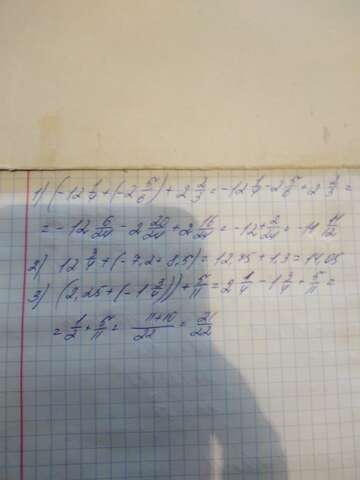 1) (-12 1/4 + (-2 5/6)) + 2 2/3 = -12 1/4 - 2 5/6 + 2 2/3 =
= -12 6/24 - 2 20/24 + 2 16/24 = -12 + 2/24 = -11 11/12
2) 12 3/4 + (-7,2 + 8,5) = 12,75 + 1,3 = 14,05
3) (2,25 + (-1 3/4)) + 5/11 = 2 1/4 - 1 3/4 + 5/11 =
= 1/2 + 5/11 = 11+10/22 = 21/22